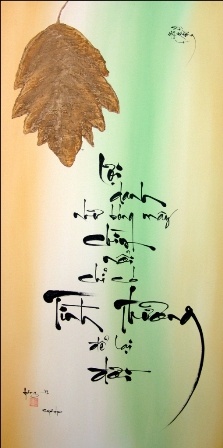 Lợi
danh
như bóng mây
chìm nổi
chỉ có
Tình thương
để lại
đời